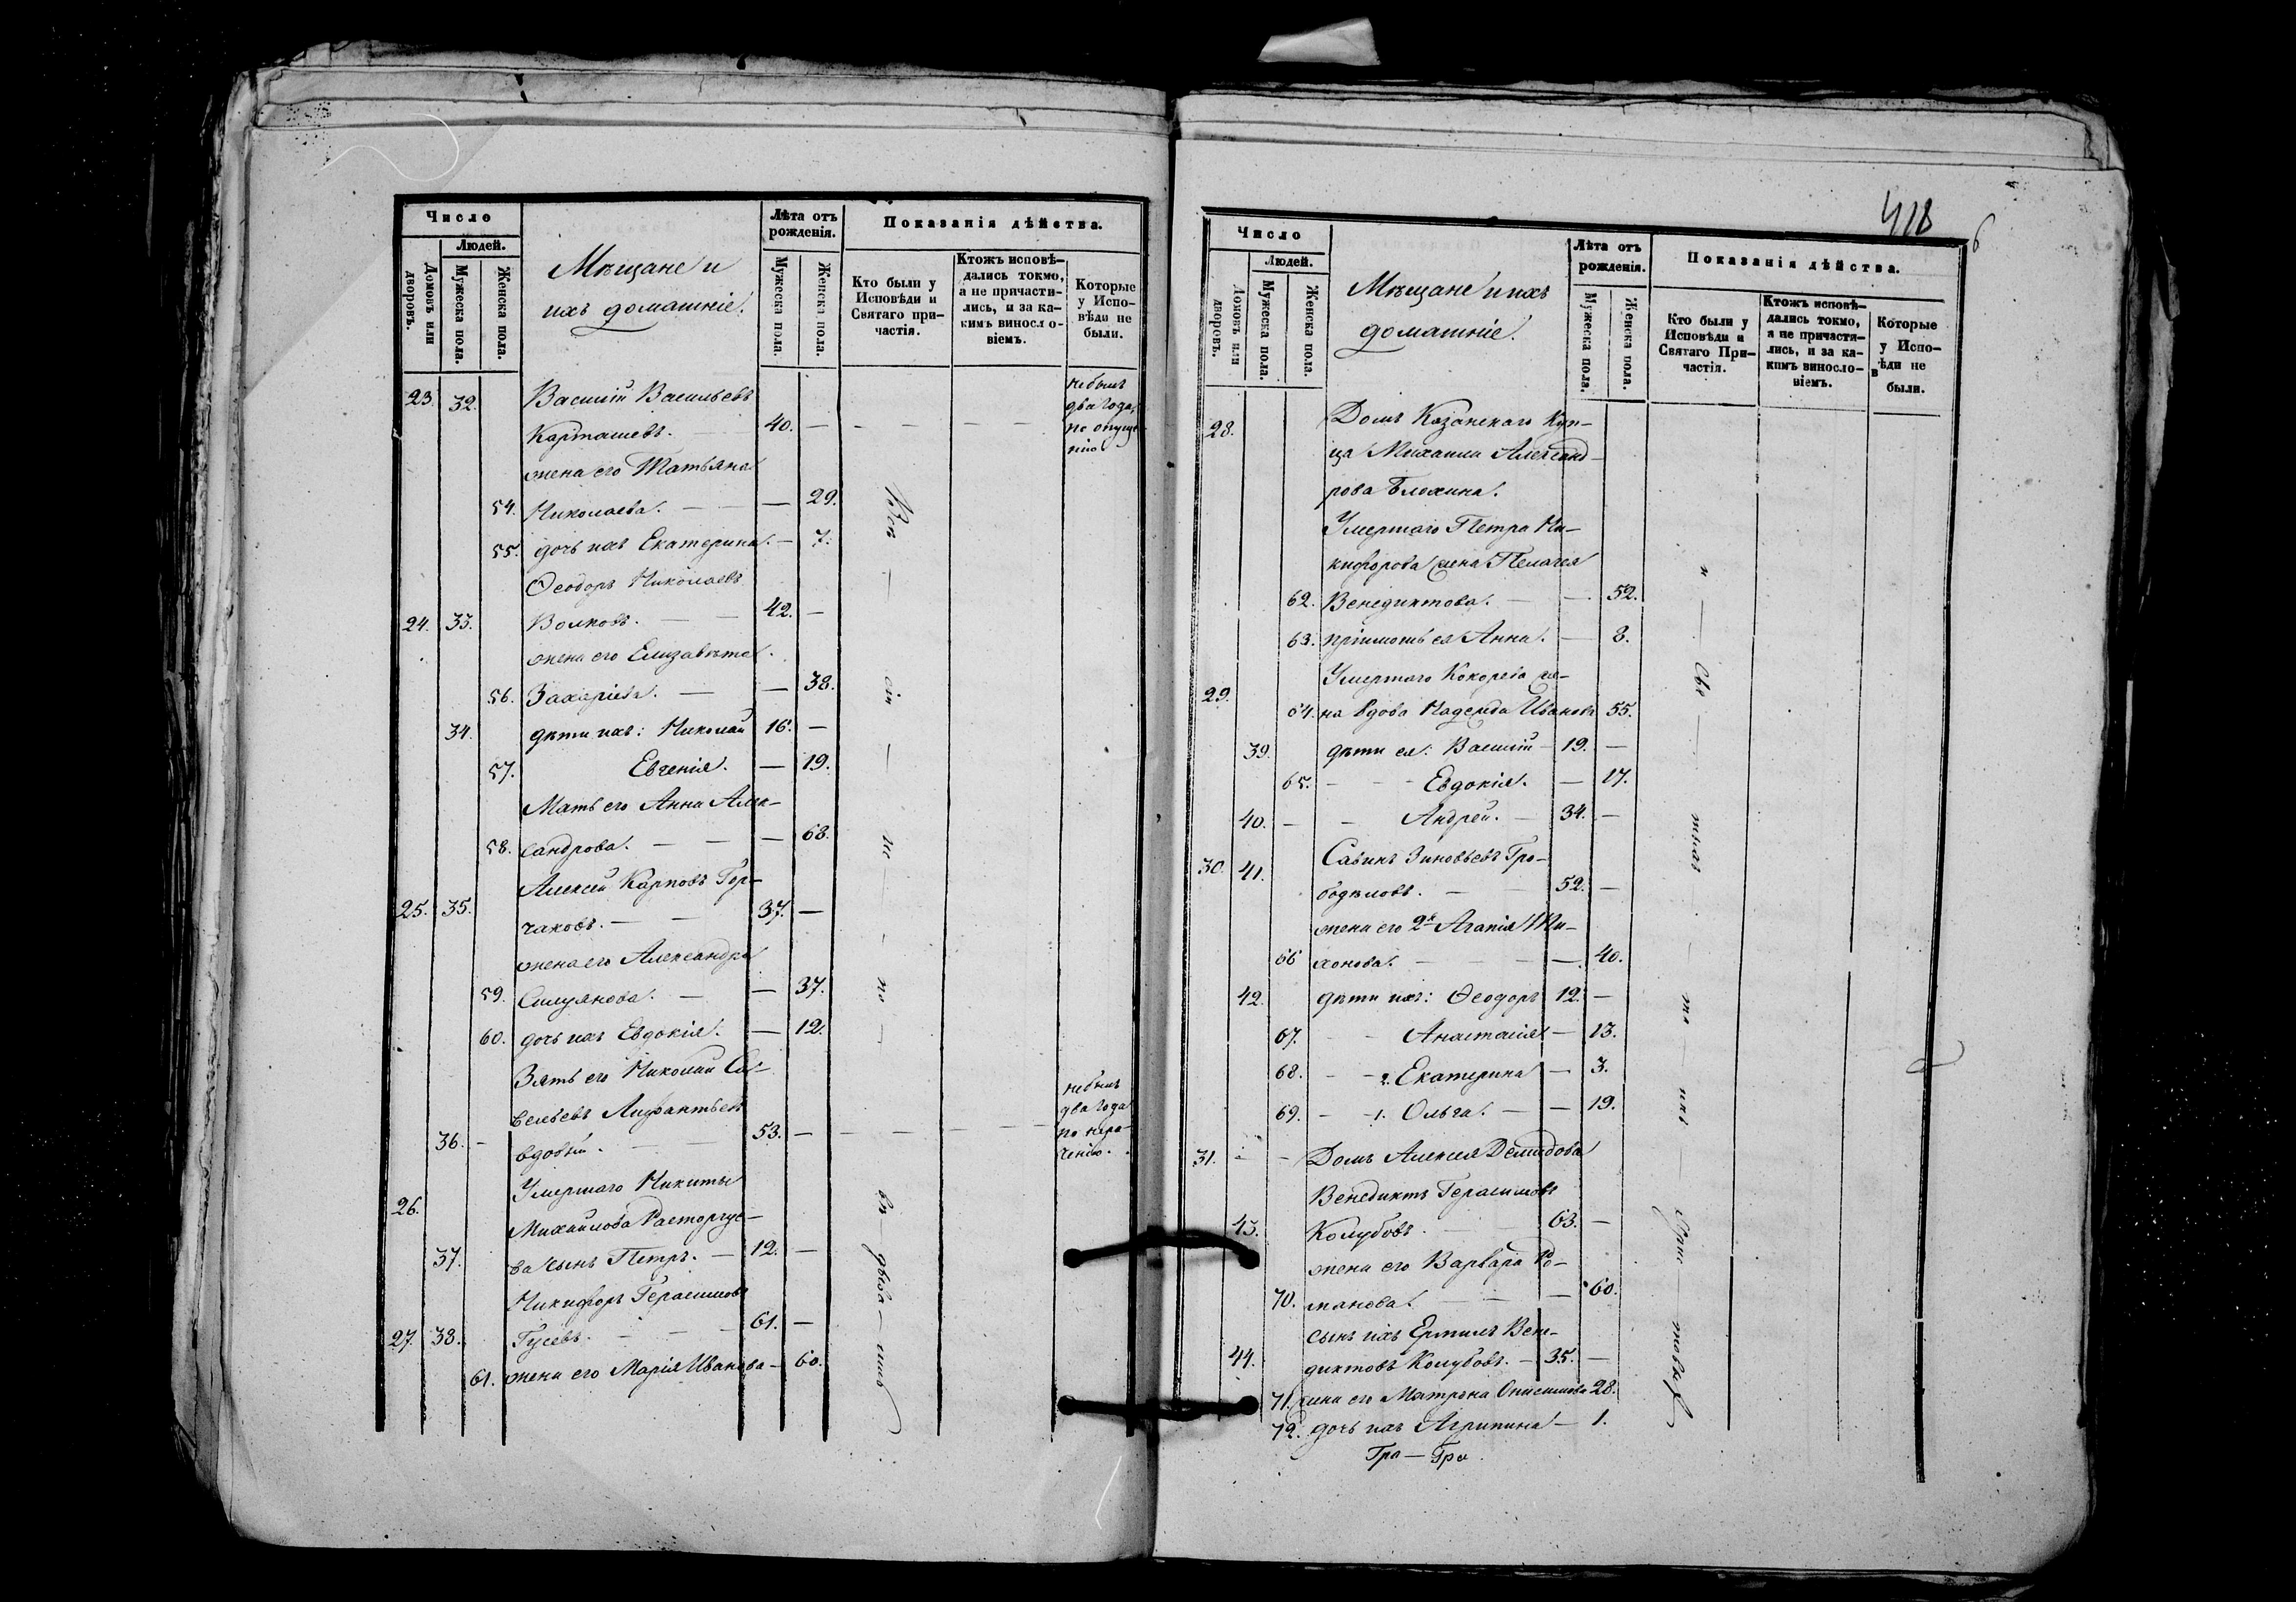 Число
Людей.
Домовъ или дворовъ.
Мужеска пола.
Женска пола.
Мѣщане и
ихъ домашніе.
Лѣта отъ
рожденія.
Мужеска пола.
Женска пола.
Показанія дѣйства.
Кто были у
Исповѣди и
Святаго при-
частія.
Ктожъ исповѣ-
дались токмо,
а не причасти-
лись, и за ка-
кимъ винос ло-
віемъ.
Которые
у Испо-
вѣди не
были.
23. 32. Василій Васильевъ
Карташевъ. 40. — — — — —
не былъ
два года,
по опуще-
нію
жена его Татьяна
54. Николаева. — — 29.
55. дочь ихъ Екатерина. — 7.
Ѳеодоръ Николаевъ
24. 33. Волковъ. — — 42. —
жена его Елизавета
56. Захаріева. — — 38.
34. дѣти ихъ: Николай 16. —
57. Евгенія. — 19.
Мать его Анна Алек-
58. сандрова. — — — 68.
Алексей Карповъ Гор-
25. 35. чаковъ. — — 37. —
жена его Александра
59. Силуянова. — — 37.
60. дочь ихъ Евдокія. — 12.
Зять его Николай Са-
вельевъ Лифантьевъ
36. — вдовый. — 53. — — — — —
не былъ
два года
по нера-
ченію.
26. Умершаго Никиты
Михайлова Расторгуе-
37. ва сынъ Петръ. — 12. —
Никифоръ Герасимовъ
27. 38. Гусевъ. — — — 61. —
61. жена его Марія Иванова — 60.
418
6
Число
Людей.
Домовъ или дворовъ.
Мужеска пола.
Женска пола.
Мѣщане и ихъ
домашніе.
Лѣта отъ
рожденія.
Мужеска пола.
Женска пола.
Показанія дѣйства.
Кто были у
Исповѣди и
Святаго При-
частія.
Ктожъ исповѣ-
дались токмо,
а не причасти-
лись, и за ка-
кимъ виносло-
віемъ.
Которые
у Испо-
вѣди не
были.
28. Домъ Казанскаго Куп-
ца Михаила Александ-
рова Блохина.
Умершаго Петра Ни-
кифорова жена Пелагея
62. Венедиктова. — — 52.
63. пріимошъ ея Анна. — 8.
29. Умершаго Кокорева же-
64. на вдова Надежда Иванова 55.
39. дѣти ея: Василій — 19. —
65. — — — Евдокія. — 17.
40. — — Андрей. — 34. —
30. 41. Савинъ Зиновьевъ Гро-
бодѣловъ. — — 52. —
жена его 2я Агапія Ти-
66 хонова. — — — — 40.
42. дѣти ихъ: Ѳеодоръ 12. —
67. — — Анастасія — 13.
68. — — 2. Екатерина — 3.
69. — — 1. Ольга. — — 19.
31. — — Домъ Алексея Демидова
Венедиктъ Герасимовъ
43. Колубовъ. — — 63. —
жена его Варвара Ро-
70. манова. — — — 60.
сынъ ихъ Ермилъ Вене-
44. диктовъ Колубовъ. — 35. —
71. жена его Матрена Онисимова 28.
72. дочь ихъ Агрипина — 1.
Гра — Гра